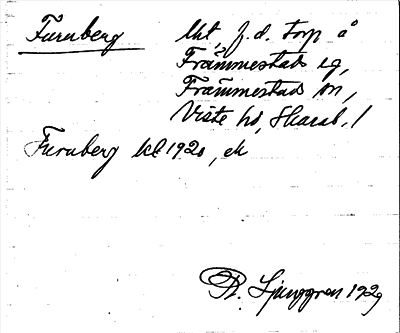 Furuberg lht, f.d. torp å
Främmestads eg,
Främmestads sn,
Viste hd, Skarab. l
Furuberg kl 1920, ek
R. Ljunggren 1929